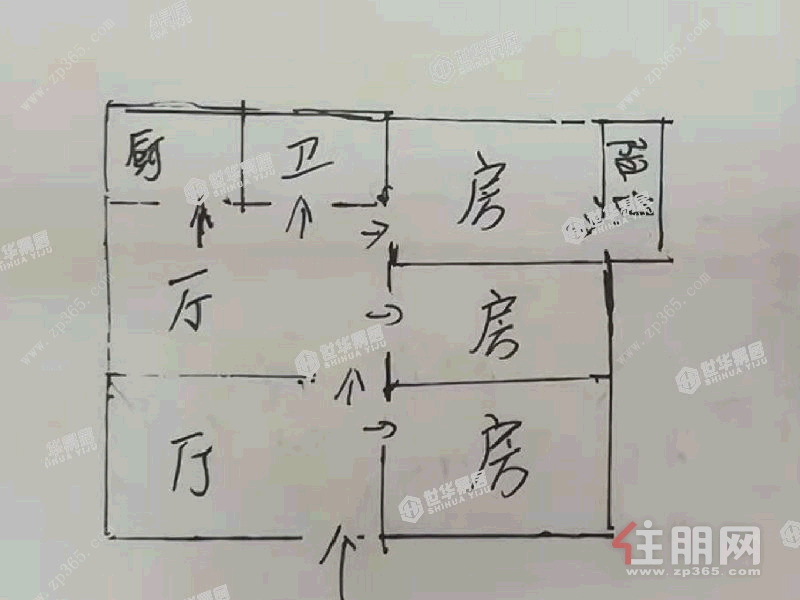 厨
卫
房
阳
厅
房
厅
房
世华易居
SHIHUA YIJU
www.zp365.com
住朋网
www.zp365.com